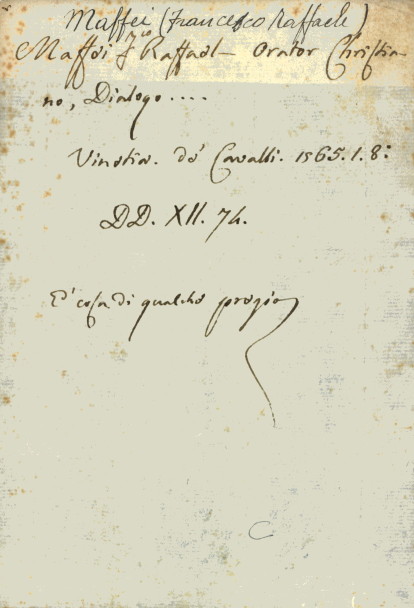 Maffei (Francesco Raffaele)
Maffei Fco Raffael - Orator Christia-
no, Dialogo....
Vinetia. de' Cavalli. 1565.1.8:
DD. XII. 74.
E' cosa di qualche pregio
C